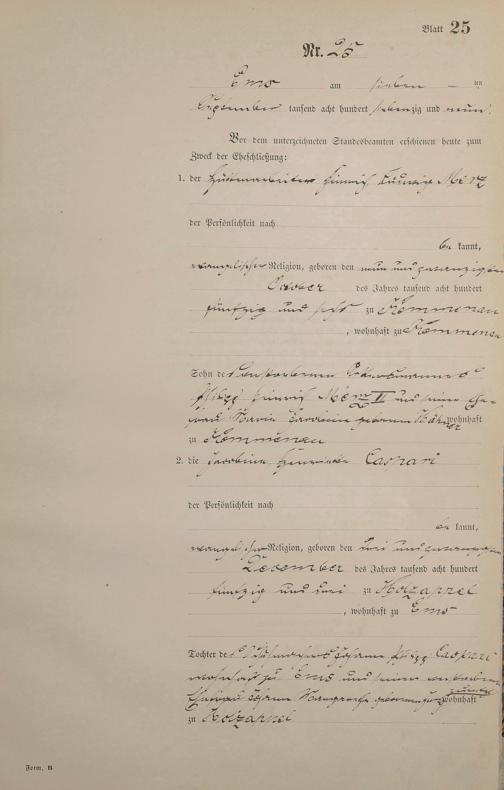 Blatt 25
Nr. 25
Ems am sieben den
September tausend acht hundert siebenzig und neun.
Vor dem unterzeichneten Standesbeamten erschienen heute zum
Zweck der Eheschließung:
1. der Hüttenarbeiter Heinrich Ludwig Merz
der Persönlichkeit nach
be kannt,
evangelischer Religion, geboren den neun und zwanzigsten
October des Jahres tausend acht hundert
fünfzig und sechs zu Kemmenau
, wohnhaft zu Kemmenau
Sohn des verstorbenen
Philipp Heinrich Merz II und seine Ehe-
frau Maria Caroline geborenen wohnhaft
zu Kemmenau
2. die Jacobine Henriette Caspari
der Persönlichkeit nach
be kannt,
evangelischer Religion, geboren den zwei und zwanzigsten
December des Jahres tausend acht hundert
fünfzig und drei zu Holzappel
, wohnhaft zu Ems
Tochter des Johann Philipp Caspari
wohnhaft zu Ems und seiner verstorbenen
Ehefrau Johanna Margarethe geborenen zuletzt wohnhaft
zu Holzappel
Form. B